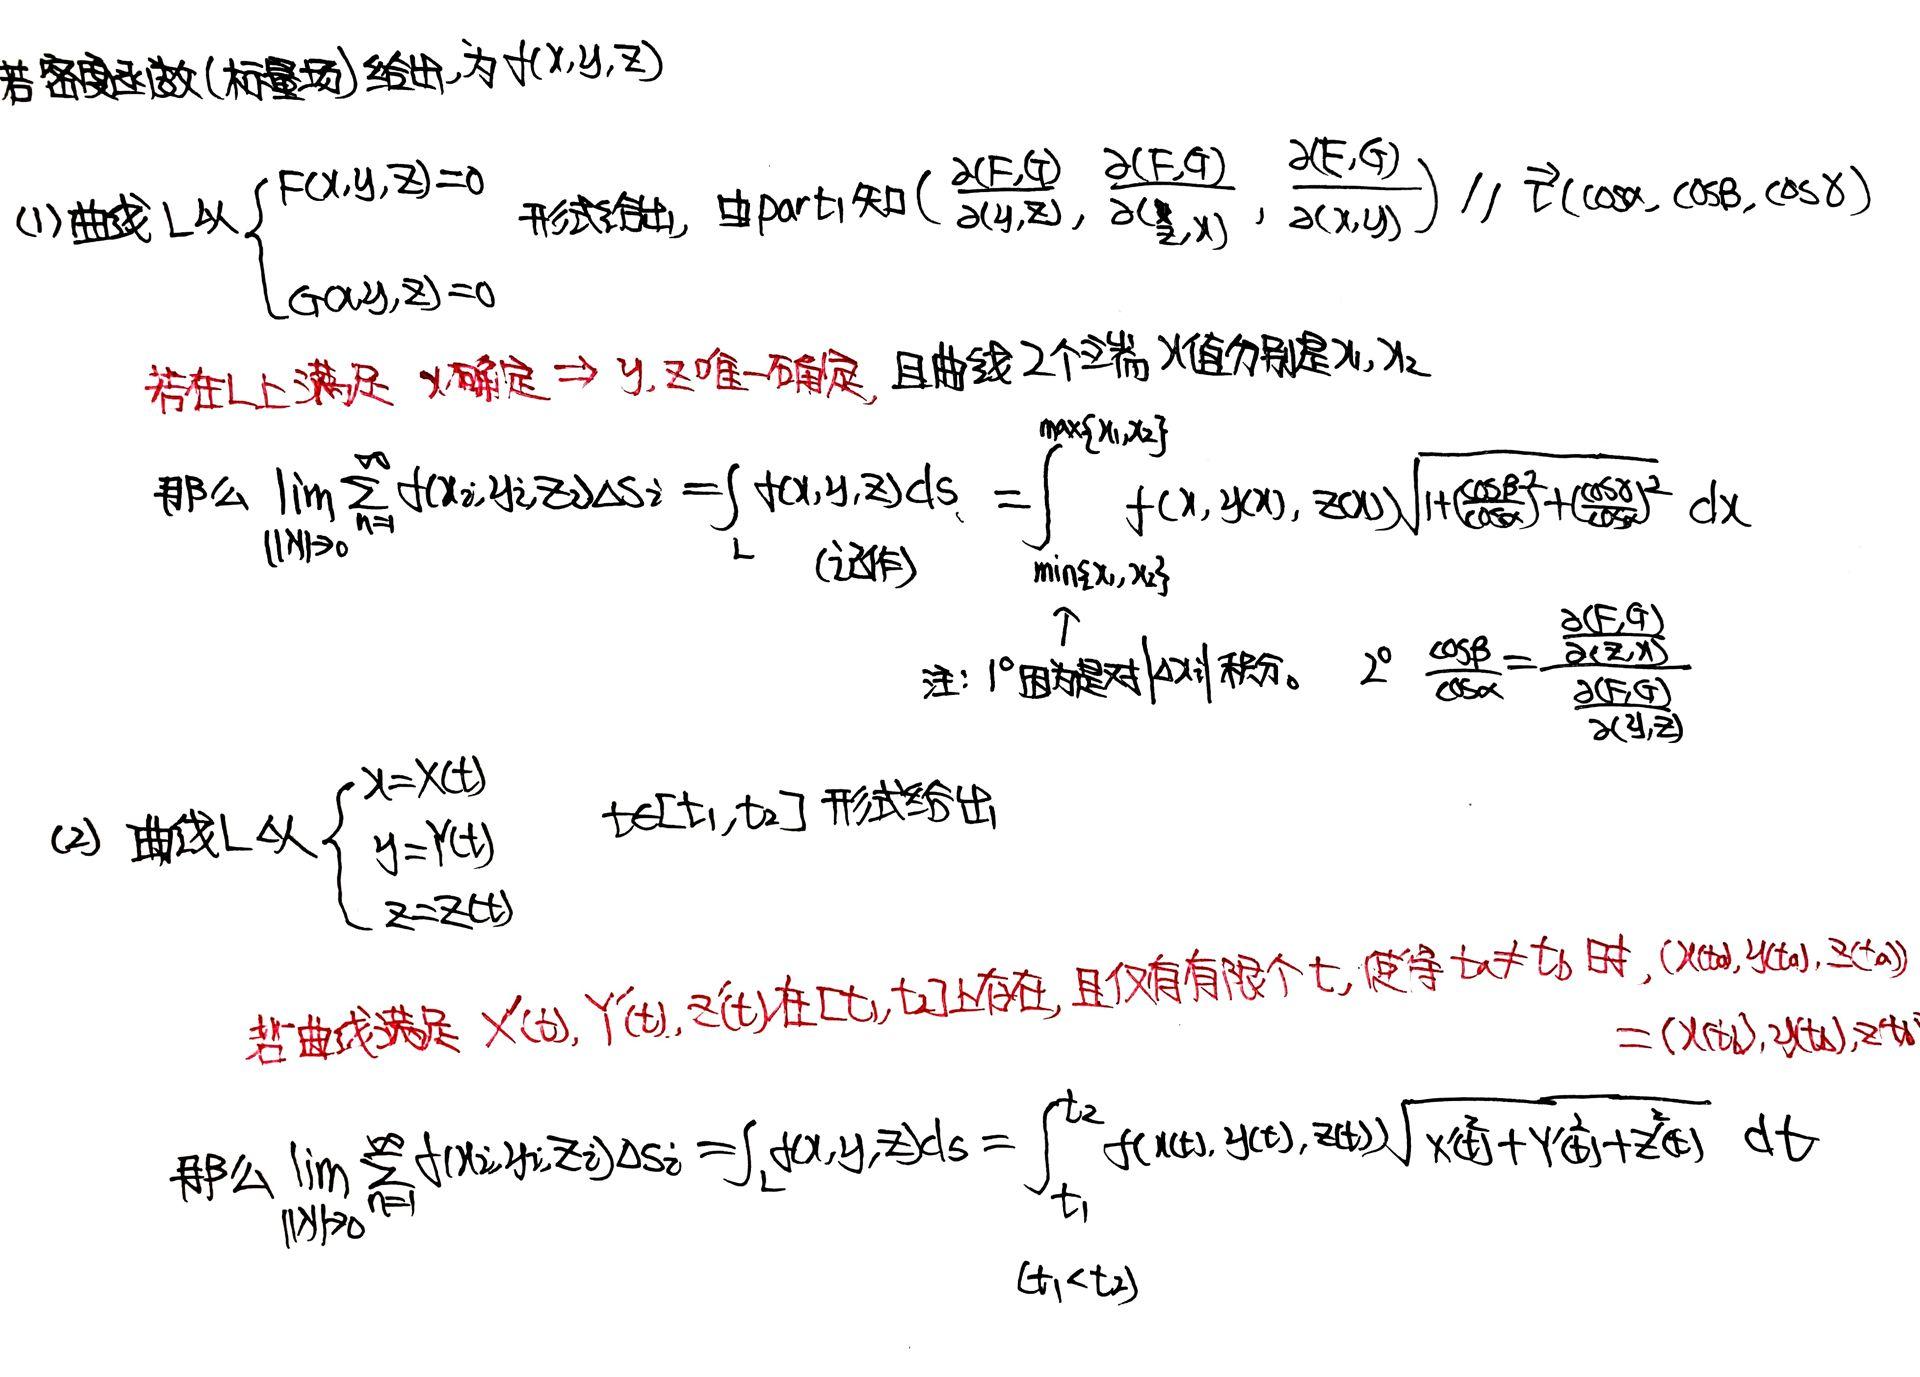 若密度函数(标量场)给出,为f(x,y,z)
(1)曲线L以 { F(x,y,z)=0 形式给出, 由part1知( ∂(F,G)/∂(y,z), ∂(F,G)/∂(z,x), ∂(F,G)/∂(x,y) ) // τ⃗(cosα, cosβ, cosγ)
G(x,y,z)=0
若在L上满足 x确定 ⇒ y,z唯一确定, 且曲线2个端 x值分别是x₁,x₂
那么 lim_{||λ||→0} ∑_{n=1}^{∞} f(xᵢ,yᵢ,zᵢ)Δsᵢ = ∫_L f(x,y,z)ds = ∫_{min{x₁,x₂}}^{max{x₁,x₂}} f(x,y(x),z(x))√(1+(cosβ/cosα)²+(cosγ/cosα)²) dx
(记作)
↑
注: 1° 因为是对|Δxᵢ|积分。 2° cosβ/cosα = (∂(F,G)/∂(z,x))/(∂(F,G)/∂(y,z))
(2) 曲线L以 { x=X(t)
y=Y(t) t∈[t₁,t₂]形式给出
z=Z(t)
若曲线满足 X'(t), Y'(t), Z'(t)在[t₁,t₂]上存在,且仅有有限个t,使得 ta≠tb 时, (x(ta),y(ta),z(ta))
=(x(tb),y(tb),z(tb)
那么 lim_{||λ||→0} ∑_{n=1}^{∞} f(xᵢ,yᵢ,zᵢ)Δsᵢ = ∫_L f(x,y,z)ds = ∫_{t₁}^{t₂} f(x(t),y(t),z(t))√(X'²(t)+Y'²(t)+Z'²(t)) dt
(t₁<t₂)